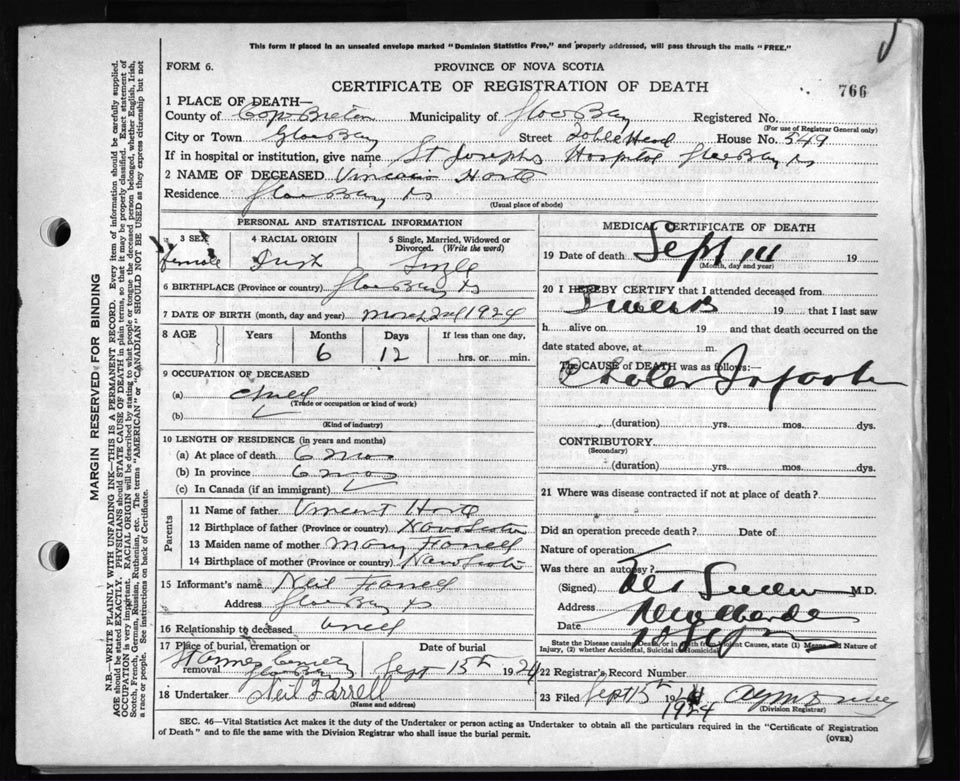 This form if placed in an unsealed envelope marked "Dominion Statistics Free," and properly addressed, will pass through the mails "FREE."
FORM 6.
PROVINCE OF NOVA SCOTIA
CERTIFICATE OF REGISTRATION OF DEATH
766
1 PLACE OF DEATH—
County of Cape Breton Municipality of Glace Bay Registered No.
(For use of Registrar General only)
City or Town Glace Bay Street Table Head House No. 549
If in hospital or institution, give name St Josephs Hospital Glace Bay NS
2 NAME OF DECEASED Horte
Residence Glace Bay NS
(Usual place of abode)
PERSONAL AND STATISTICAL INFORMATION
3 SEX
female
4 RACIAL ORIGIN
Irish
5 Single, Married, Widowed or Divorced. (Write the word)
Single
6 BIRTHPLACE (Province or country) Glace Bay NS
7 DATE OF BIRTH (month, day and year) 1924
8 AGE Years Months Days If less than one day,
6 12 hrs. or min.
9 OCCUPATION OF DECEASED
(a) child
(Trade or occupation or kind of work)
(b)
(Kind of industry)
10 LENGTH OF RESIDENCE (in years and months)
(a) At place of death 6 mos
(b) In province 6 mos
(c) In Canada (if an immigrant)
Parents
11 Name of father Vincent Horte
12 Birthplace of father (Province or country) Nova Scotia
13 Maiden name of mother Mary Farrell
14 Birthplace of mother (Province or country) Nova Scotia
15 Informant's name Neil Farrell
Address Glace Bay NS
16 Relationship to deceased uncle
17 Place of burial, cremation or removal
Glace Bay
Date of burial
Sept 15th 1924
18 Undertaker Neil Farrell
(Name and address)
MEDICAL CERTIFICATE OF DEATH
19 Date of death Sept 14 19
(Month, day and year)
20 I HEREBY CERTIFY that I attended deceased from
2 weeks 19 that I last saw
h alive on 19 and that death occurred on
date stated above, at m.
The CAUSE of DEATH was as follows:—
Cholera Infantum
(duration) yrs. mos. dys.
CONTRIBUTORY
(Secondary)
(duration) yrs. mos. dys.
21 Where was disease contracted if not at place of death?
Did an operation precede death? Date of
Nature of operation
Was there an autopsy?
(Signed) M.D.
Address
Date
State the Disease causing Death, or in deaths from Violent Causes, state (1) Means and Nature of Injury, (2) whether Accidental, Suicidal or Homicidal.
22 Registrar's Record Number.
23 Filed Sept 15th 1924
(Division Registrar)
SEC. 46—Vital Statistics Act makes it the duty of the Undertaker or person acting as Undertaker to obtain all the particulars required in the "Certificate of Registration of Death" and to file the same with the Division Registrar who shall issue the burial permit.
(OVER)
MARGIN RESERVED FOR BINDING
N.B.—WRITE PLAINLY WITH UNFADING INK—THIS IS A PERMANENT RECORD. Every item of information should be carefully supplied.
AGE should be stated EXACTLY. PHYSICIANS should STATE CAUSE OF DEATH in plain terms, so that it may be properly classified. Exact statement of
OCCUPATION is very important. RACIAL ORIGIN will be described by stating to what people or tongue the deceased person belonged, whether English, Irish,
Scotch, French, German, Russian, Ruthenian, etc. The terms "AMERICAN" or "CANADIAN" SHOULD NOT BE USED as they express citizenship but not
a race or people. See instructions on back of Certificate.